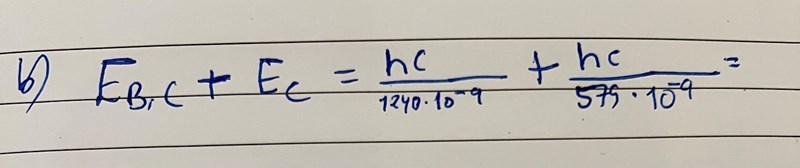 b) E_{B,C} + E_C = \frac{hc}{1240 \cdot 10^{-9}} + \frac{hc}{579 \cdot 10^{-9}} =